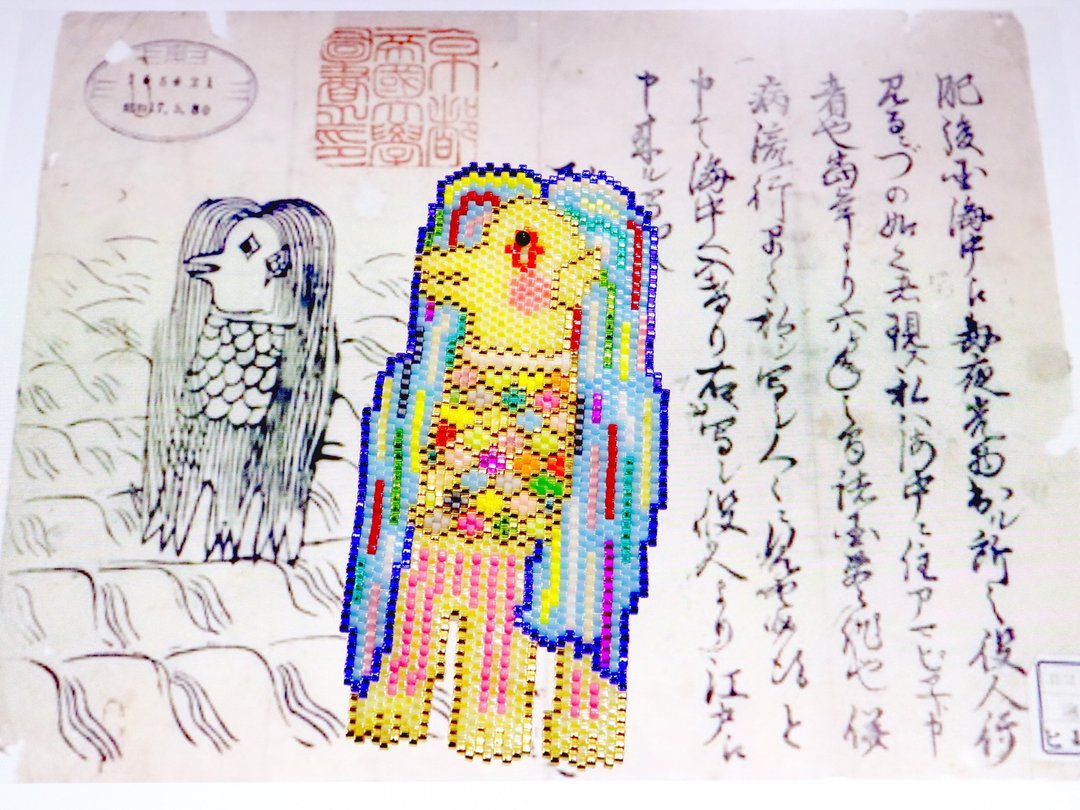 肥後国海中江毎夜光物出ル所之役人行
見るニづの如く者現ス私ハ海中ニ住アマビヱト申
者也当年より六ヶ年之間諸国豊作也併
病流行早々私シ写シ人々ニ見セ候得と
申て海中へ入けり右写シ役人より江戸江
申来ル写也
京都
帝國大學
圖書之印